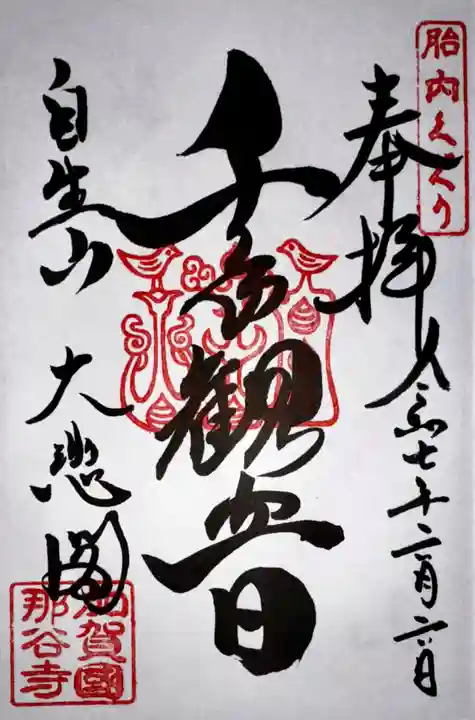 胎内くぐり
奉拝 令和七年二月
千手観音
自生山 大悲閣
加賀國
那谷寺